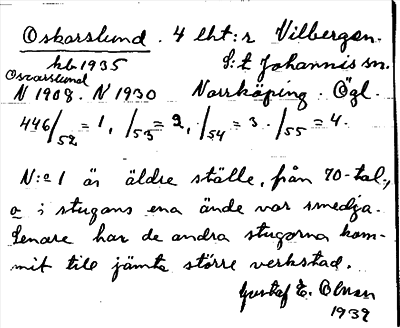 Oskarslund. 4 lht:r Vilbergen.
hb 1935 S:t Johannis sn.
Oscarslund
N 1908. N 1930 Norrköping. Ögl.
446/52 = 1, /53 = 2, /54 = 3. /55 = 4.
N:o 1 är äldre ställe, från 70-tal.,
o i stugans ena ände var smedja.
Senare har de andra stugorna kom-
mit till jämte större verkstad.
Gustaf E. Olsson
1939